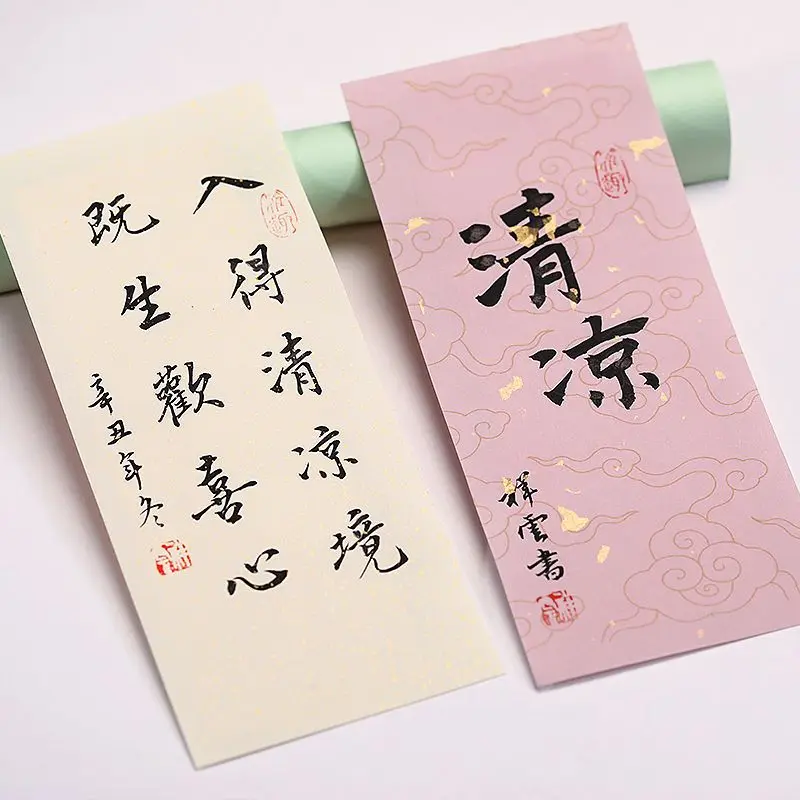 入得清凉境
既生歡喜心
辛丑年冬
清凉
祥雲書